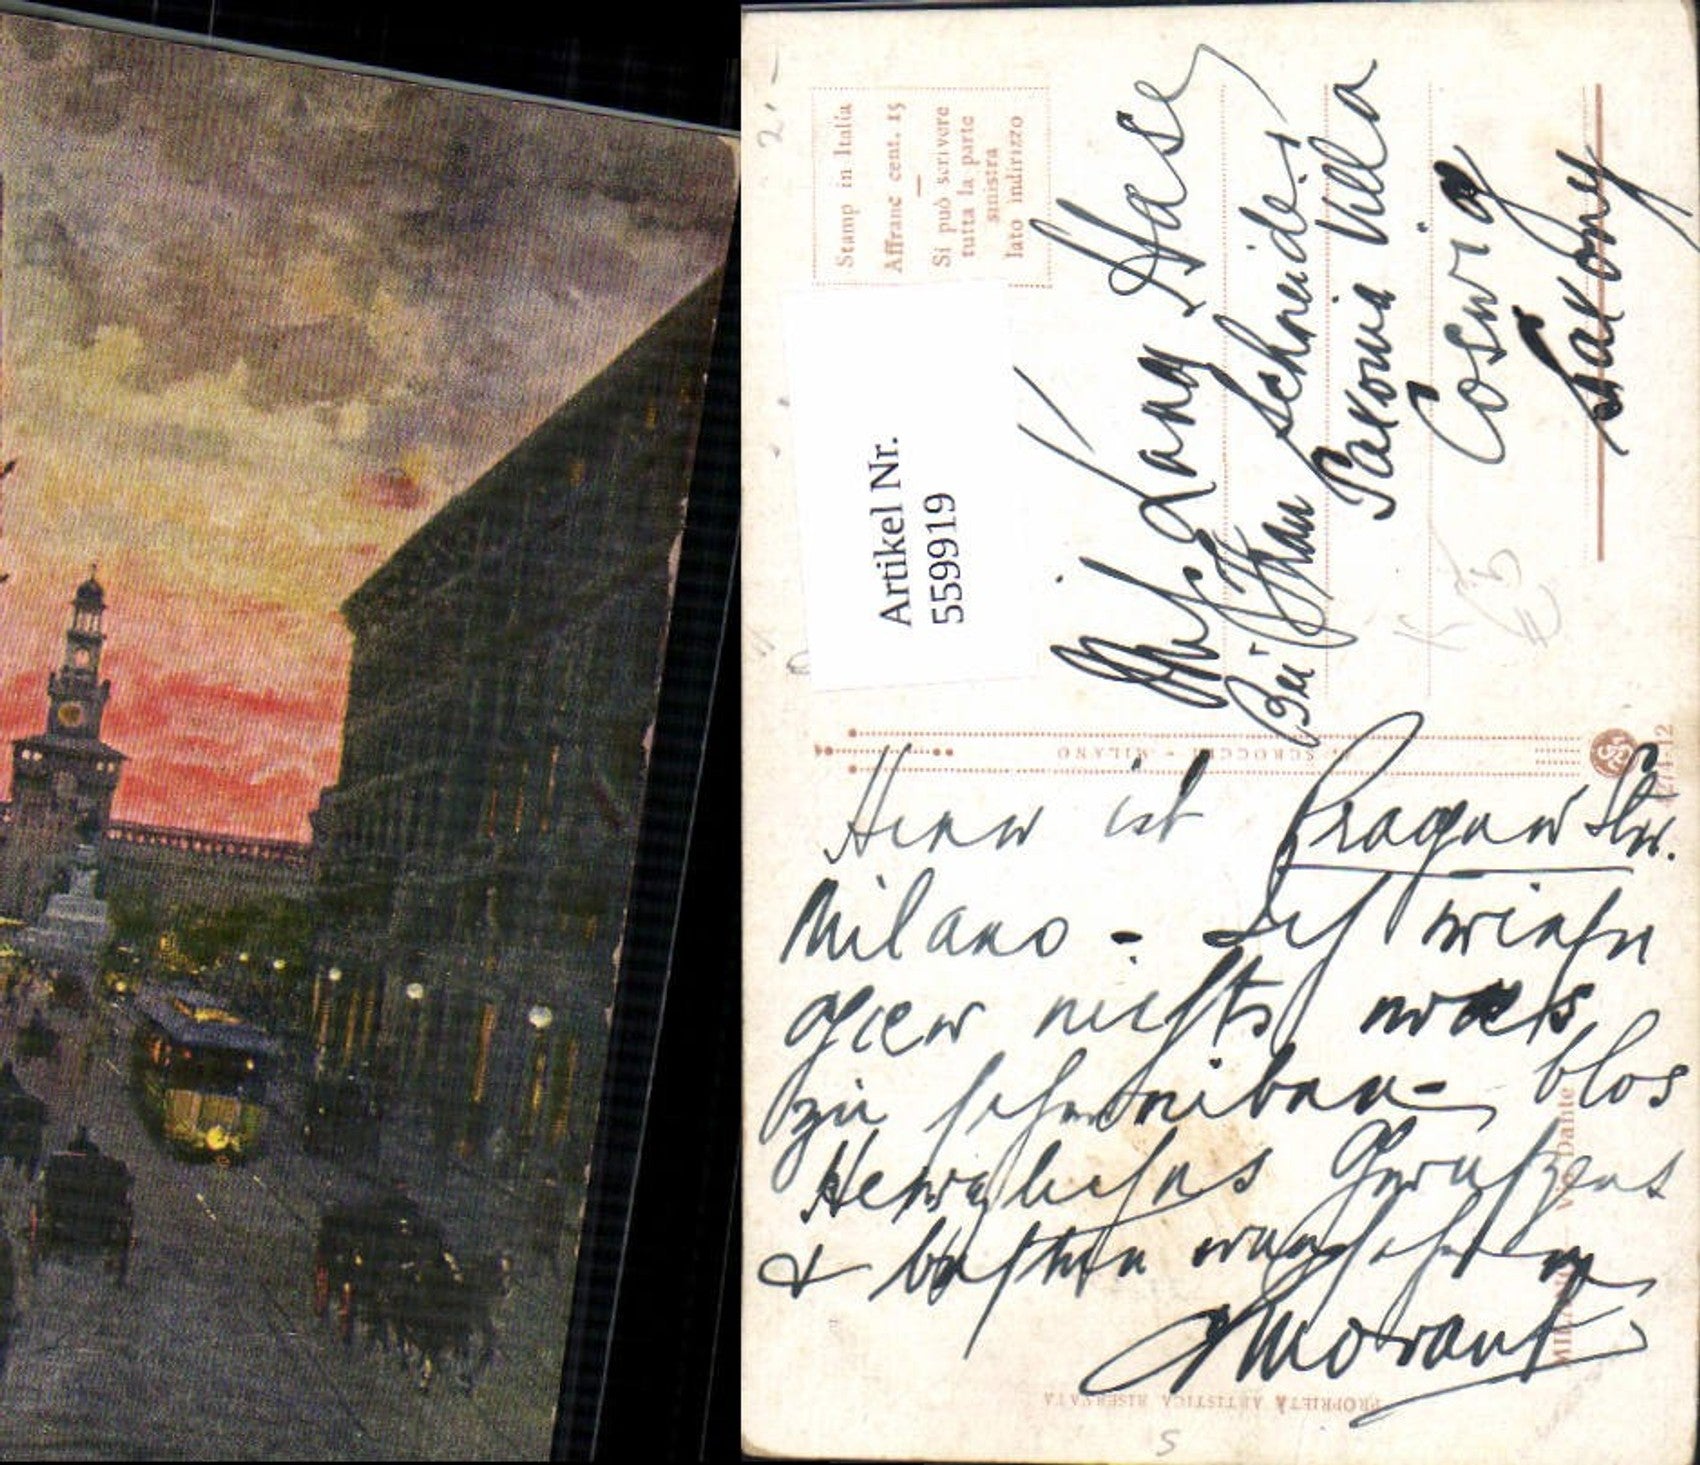 Stamp in Italia
Affranc cent. 15
Si può scrivere
tutta la parte
sinistra
lato indirizzo
Artikel Nr.
5599919
Miss Lany Hase
Bei Frau Schneider
Saxonia Villa
Coswig
Saxony
SCROCCHI - MILANO
374-12
Hier ist Prager Str.
Milano - Ich
nichts
zu schreiben - blos
Herzliches
& besten
Morant
Milano - Via Dante
PROPRIETÀ ARTISTICA RISERVATA
5